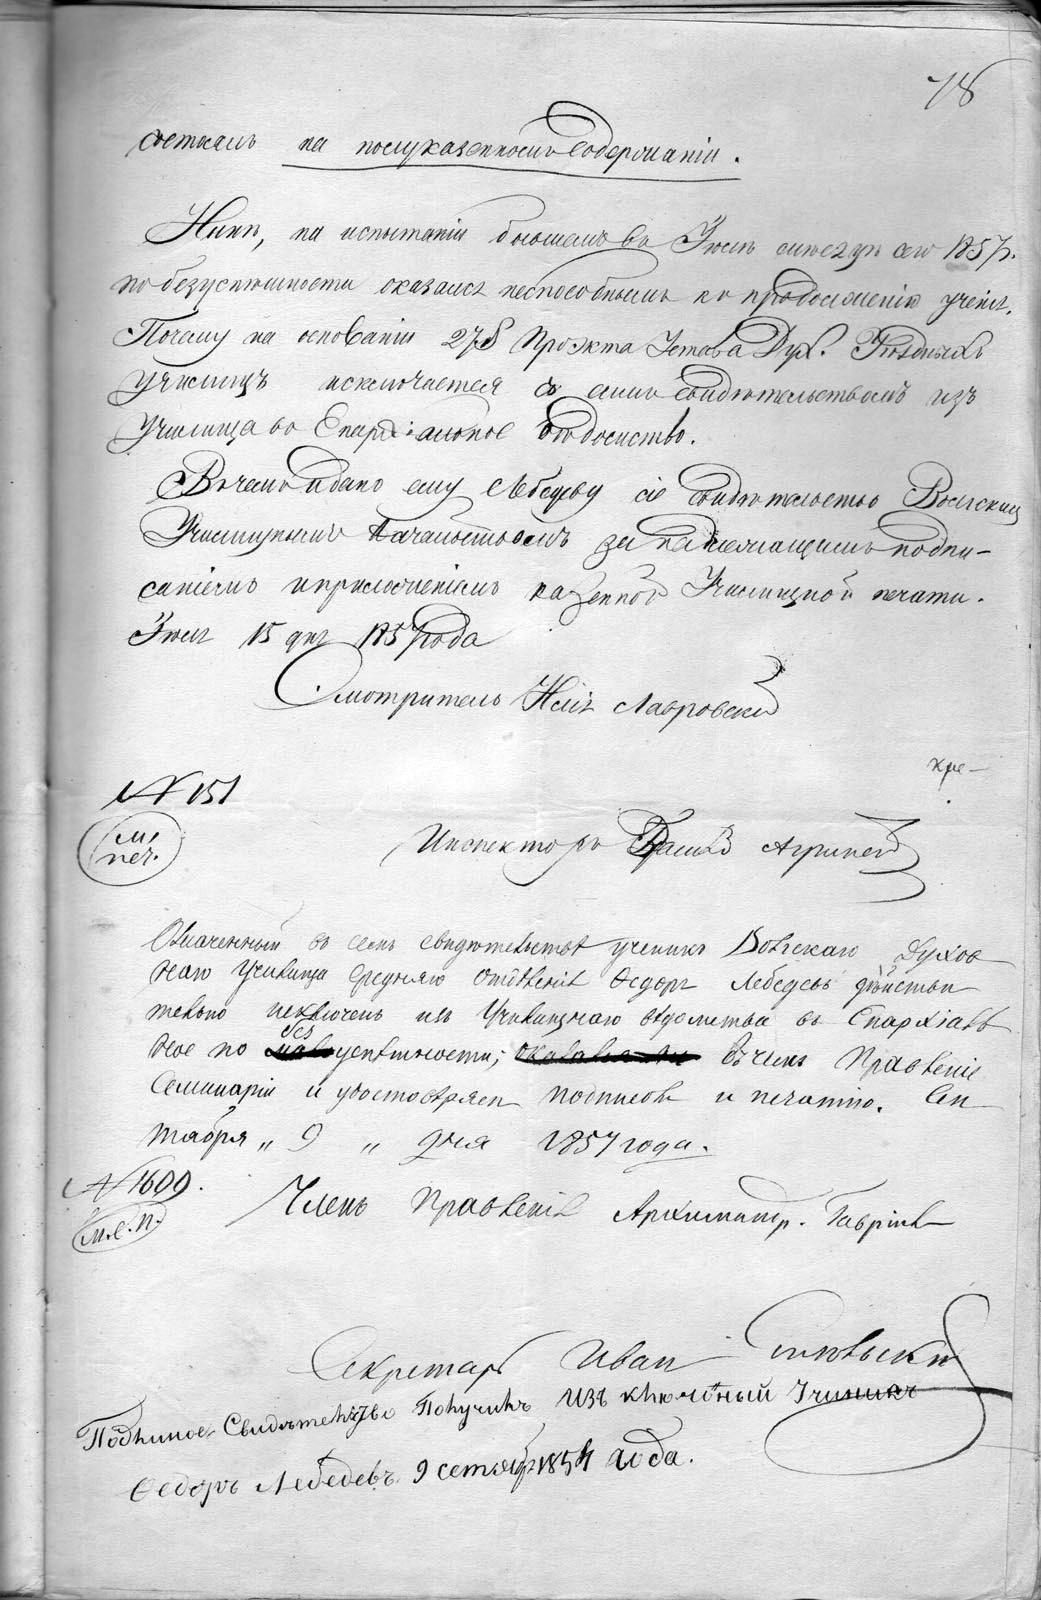 78
состоялъ на полуказенномъ содержаніи.
Нынѣ, на испытаніи бывшемъ въ Іюлѣ сего 1857 г.
по безуспѣшности оказался неспособнымъ къ продолженію ученія.
Почему на основаніи 27 § Проэкта Устава Дух. Уѣздныхъ
училищъ исключается съ симъ свидѣтельствомъ изъ
Училища въ Епархіальное вѣдомство.
Въ чемъ и дано ему Лебедеву сіе свидѣтельство Вольскимъ
Училищнымъ Начальствомъ за надлежащимъ подпи-
саніемъ и приложеніемъ казенной Училищной печати.
Іюля 15 дня 1857 года
Смотритель Лавровскій
хре-
№ 151
М.
печ.
Инспекторъ
Означенный въ семъ свидѣтельствѣ ученикъ Вольскаго Духов
наго Училища средняго отдѣленія Ѳедоръ Лебедевъ дѣйстви
тельно исключенъ изъ Училищнаго вѣдомства въ Епархіаль
ное по безуспѣшности; въ чемъ Правленіе
Семинаріи и удостовѣряетъ подписью и печатью. Сен
тября „ 9 „ дня 1857 года.
№ 1609.
М.С.П.
Членъ Правленія Архимандр. Гавріилъ
Секретарь Иван
Подлиное Свидѣтельство Получилъ изъ ключѐный Ученикъ
Ѳедоръ Лебедевъ 9 сентября 1857 года.